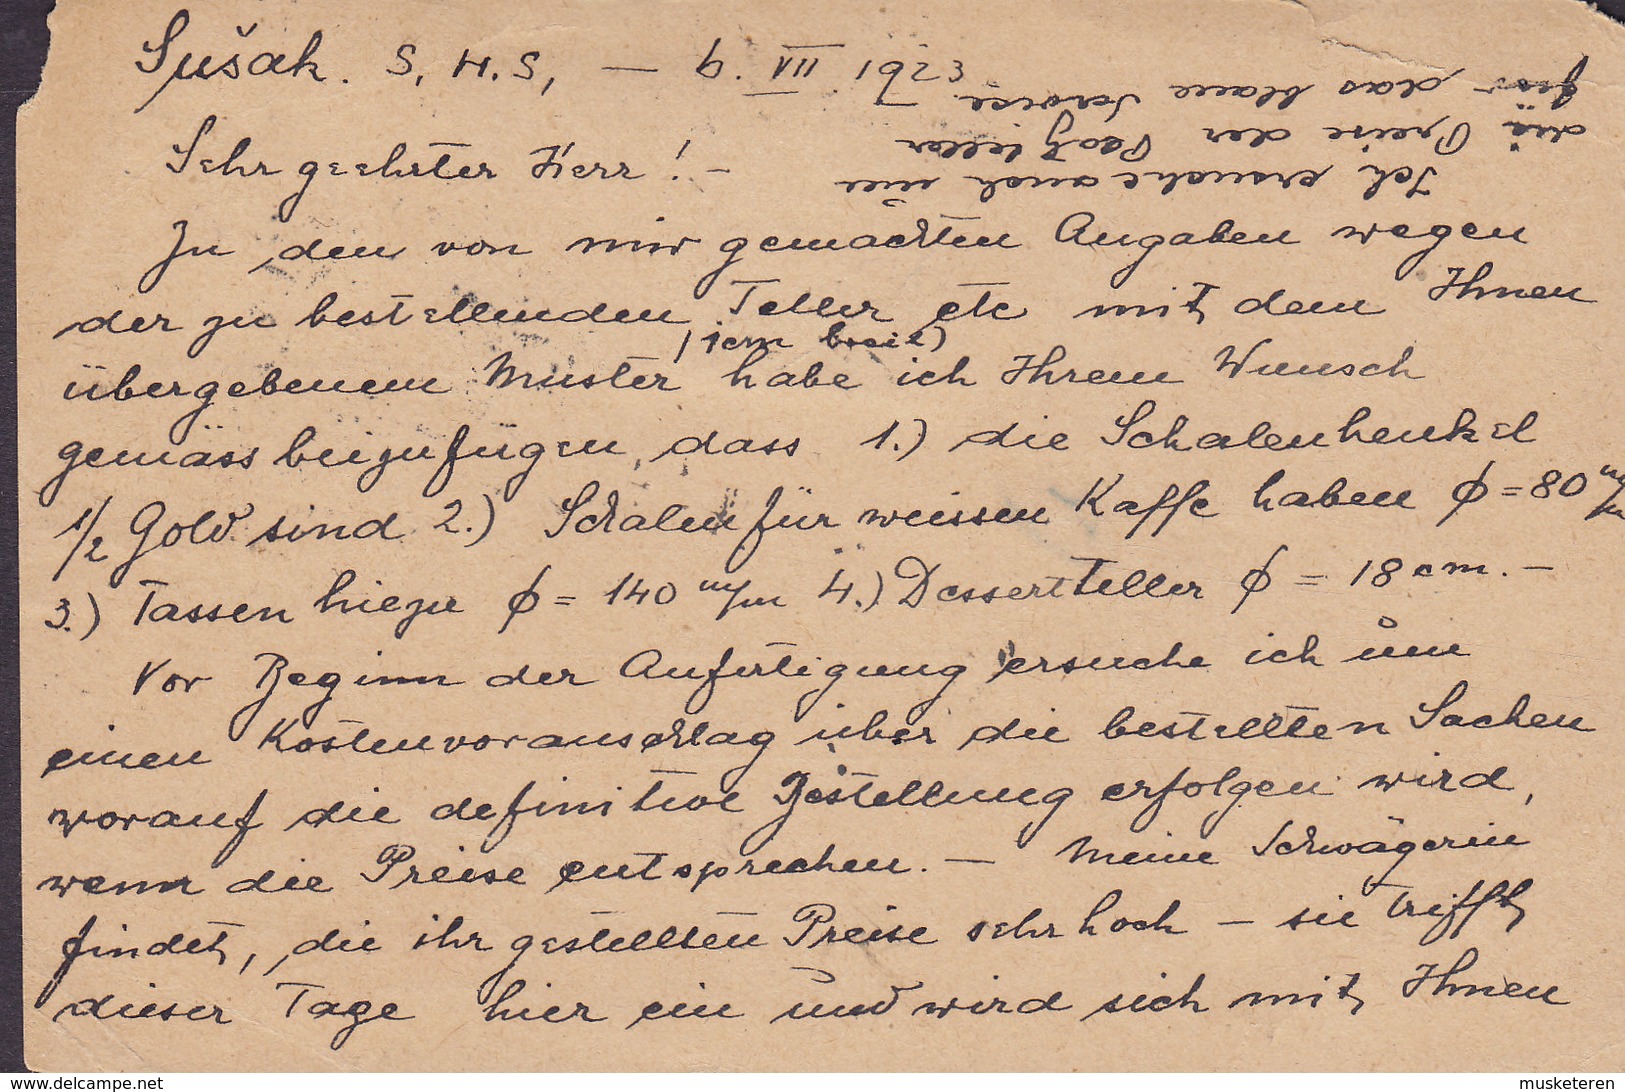 Sušak. S. H. S, — 6. VIII 1923
Sehr geehrter Herr! —
Zu den von mir gemachten Angaben wegen
der zu bestellenden Teller etc mit dem Ihnen
(1cm breit)
übergebenem Muster habe ich Ihrem Wunsch
gemäss beizufügen, dass 1.) die Schalenhenkel
1/2 Gold sind 2.) Schalen für weissen Kaffe haben ϕ = 80 m/m
3.) Tassen hiezu ϕ = 140 m/m 4.) Dessertteller ϕ = 18 cm. —
Vor Beginn der Anfertigung ersuche ich um
einen Kostenvoranschlag über die bestellten Sachen
worauf die definitive Bestellung erfolgen wird,
wenn die Preise entsprechen. — Meine Schwägerin
findet, die ihr gestellten Preise sehr hoch — sie trifft
dieser Tage hier ein und wird sich mit Ihnen
Ich ersuche auch um
die Preise der Teller
für das blaue Service
www.delcampe.net
musketeren